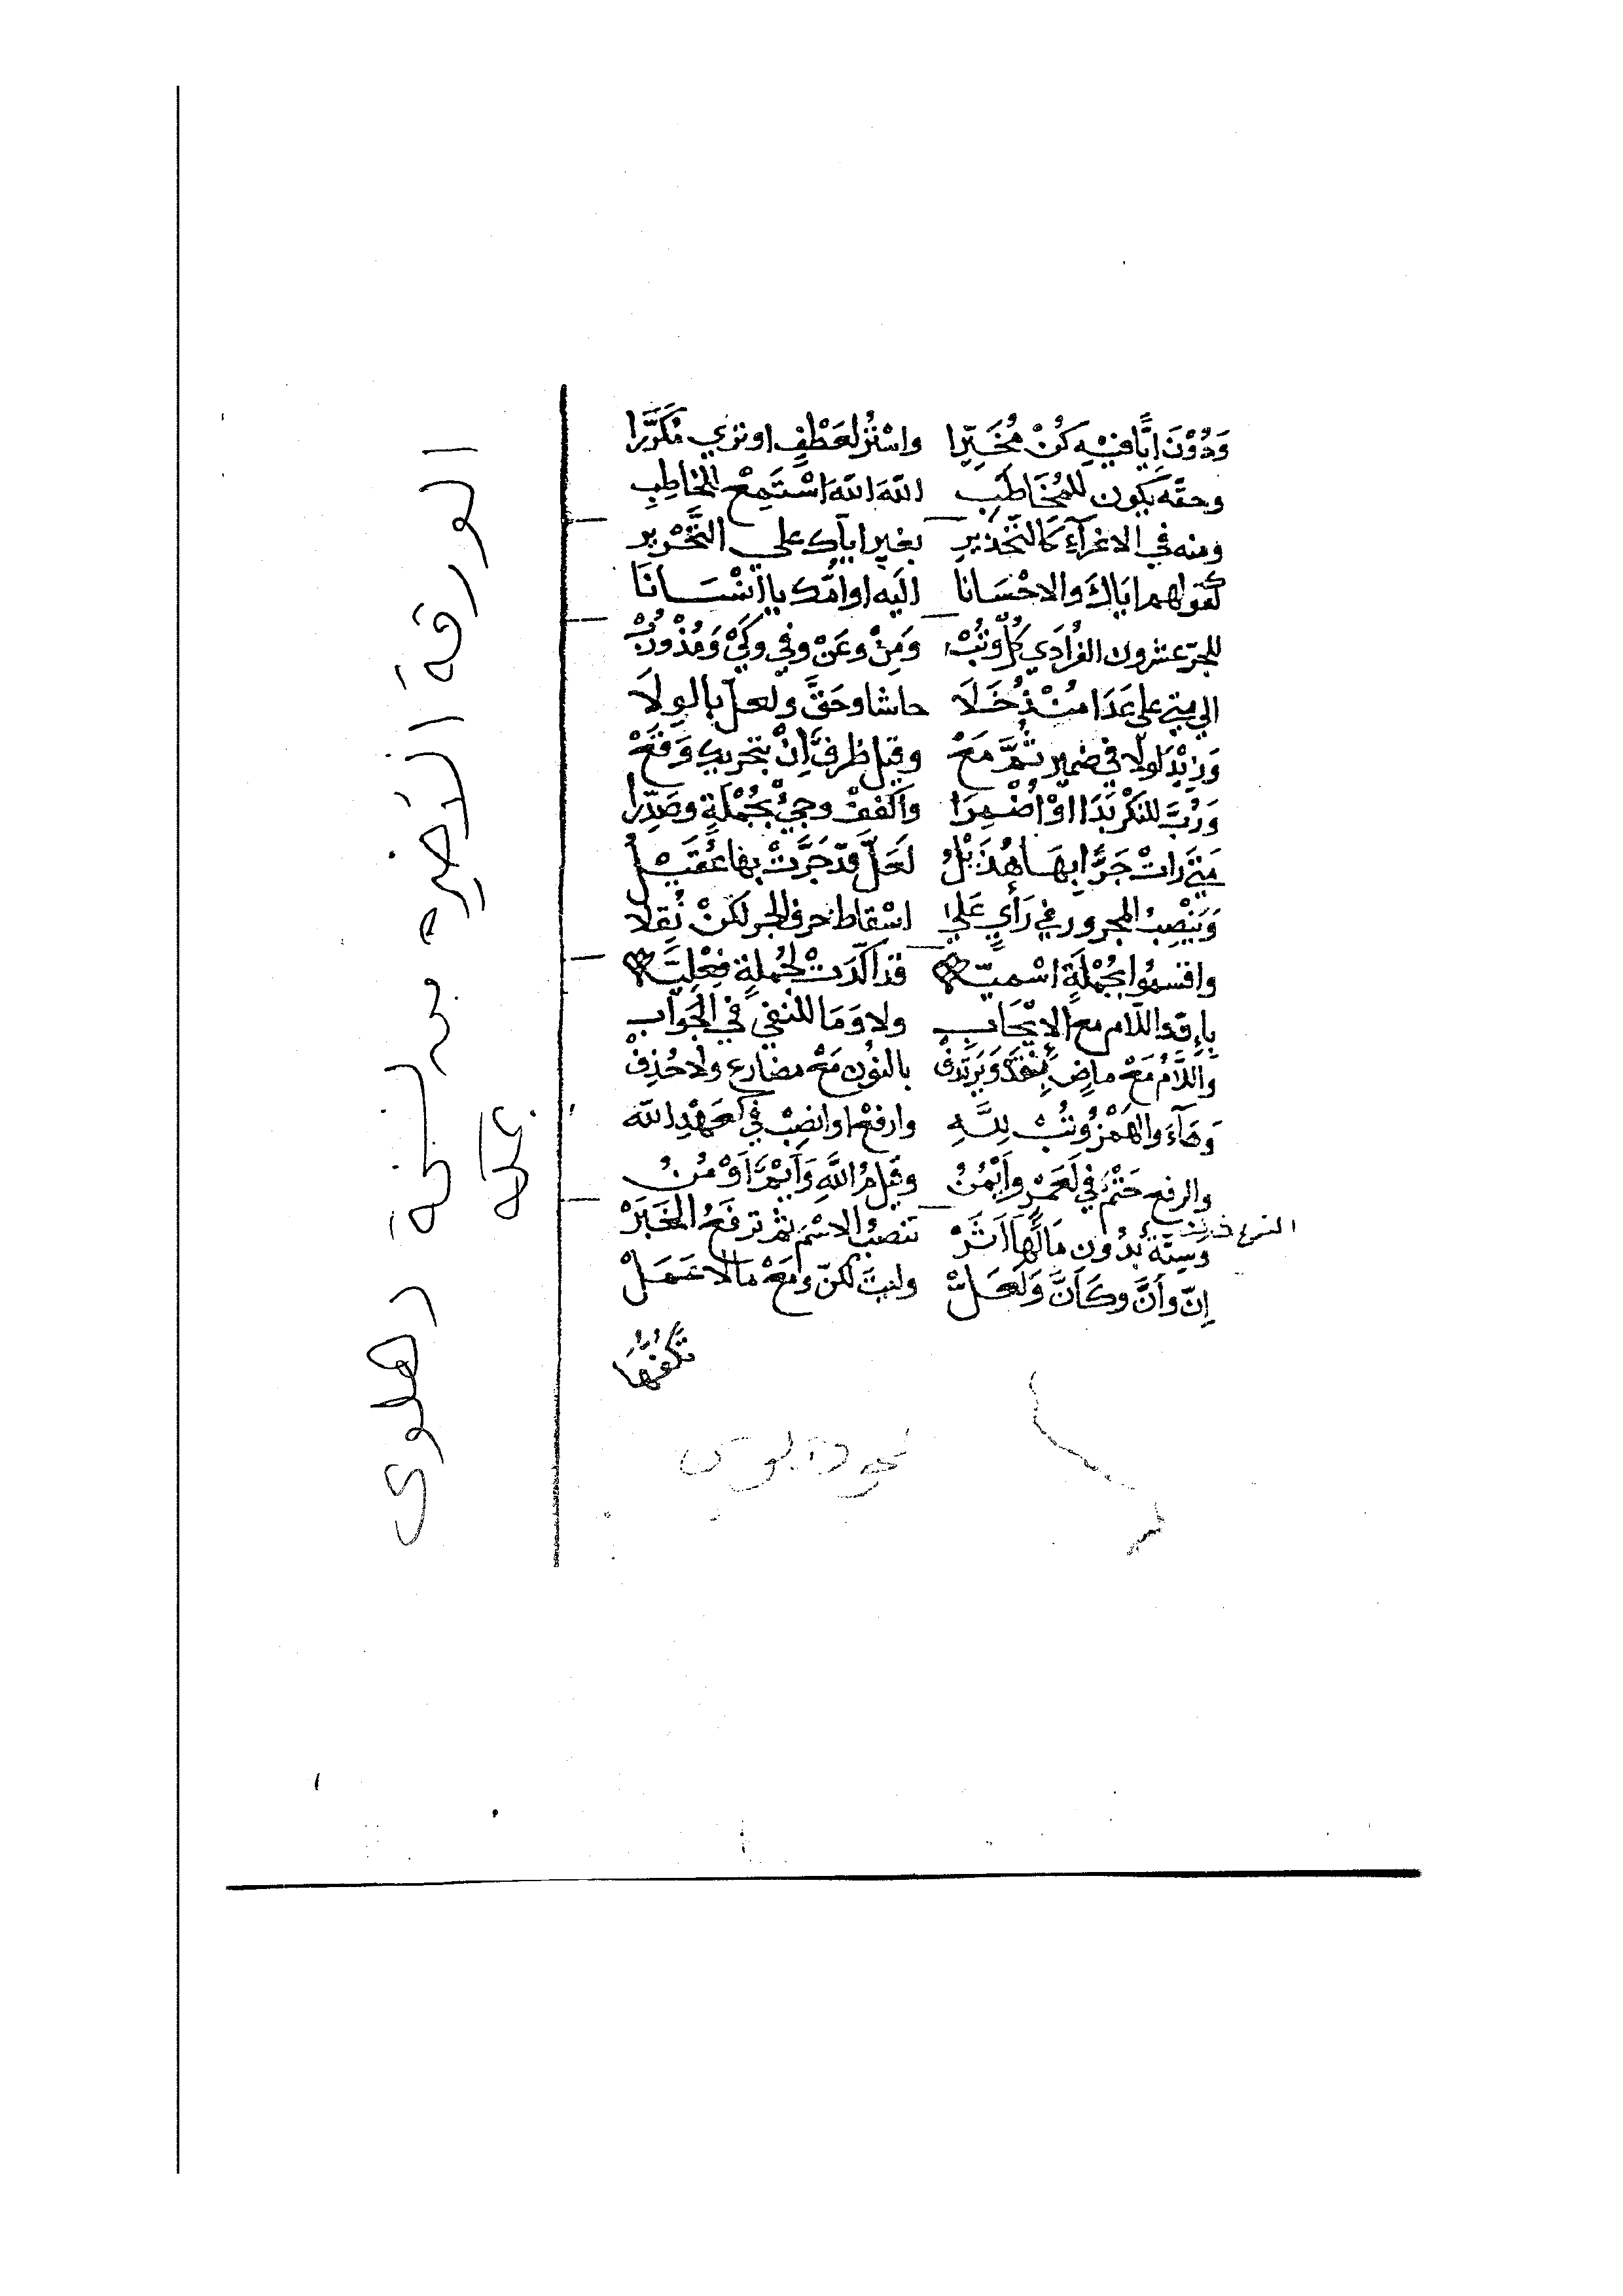 وَدُوْنَ اِيَّا فِيْهِ كُنْ مُخَيِّرا واسْتُرْ لعَطْفٍ او تري مُكَرَّرا
وحقّه يكون للمُخَاطَبِ اللّهَ اللّهَ اسْتَمِعْ للخاطِبِ
ومنه في الاغرآءِ كَالتّحْذيرِ بغير اياك علي التَّحْرير
كقولهم اياكَ والاحْسَانا اليه او امّك يا انْسَانَا
للجرّ عشرون الفُرَادَي كُلٌّ وتُبْ وَمِنْ وعَنْ وفي وكَيْ وَمُذْ ورُبْ
الي متي علي عَدَا مُنْذُ خَلَا حاشا وحَتَّي ولعل بالوِلَا
وَزِيْدَ لولا في ضمير ثُمَّ مَعْ وقيل ظرف اِنْ بتحريك وَقَعْ
وَرُبَّ للنكْرِ بَدَا اوْ اُضْمِرَا واكْفُفْ وجِئْ بجُمْلَةٍ وصَدِّرا
مَتَي رَاتْ جَرًّا بِهَا هُذَيْلُ لَعَلَّ قد جَرَّتْ بها عُقَيْلُ
وَيُنْصَبُ المجرور في رَأيٍ عَلَي اسْقاط حرف الجر لكنْ نُقِلا
واقسمُوا بجُمْلَةٍ اسْميّه قد اكّدَتْ لجُملةٍ فِعْلِيَّه
بإِن وَاللّام مع الإِيْجَابِ ولا وَمَا للنفي في الجَوَاب
واللَّامُ مَعْ ماضٍ بِقَدْ وَيَرْتَدِفْ بالنُوْنِ مَعْ مضارع ولا حُذِفْ
وَهَآءَ والهَمْزُ وتُبْ لِلَّهِ وارفعْ او انصِبْ في كَعَهْدِ اللّه
والرفع حَتْمٌ في لَعَمْرُ وأَيْمُنُ وقيل مُ اللَّهِ وَأَيْمُ أَوْ مُنُ
وَسِتّةٌ بِدُونِ مَا لَهَا اَثَرْ تنصبُ الاسْمَ ثم ترفَعُ الخَبَرْ
إنّ وأَنَّ وكَأَنَّ وَلَعَلّْ وليتَ لكنّ وَمَعْ ما لا عَمَلْ
تَكُفُّهَا
الورقة الأخيرة من نسخة دهلوي
مكه